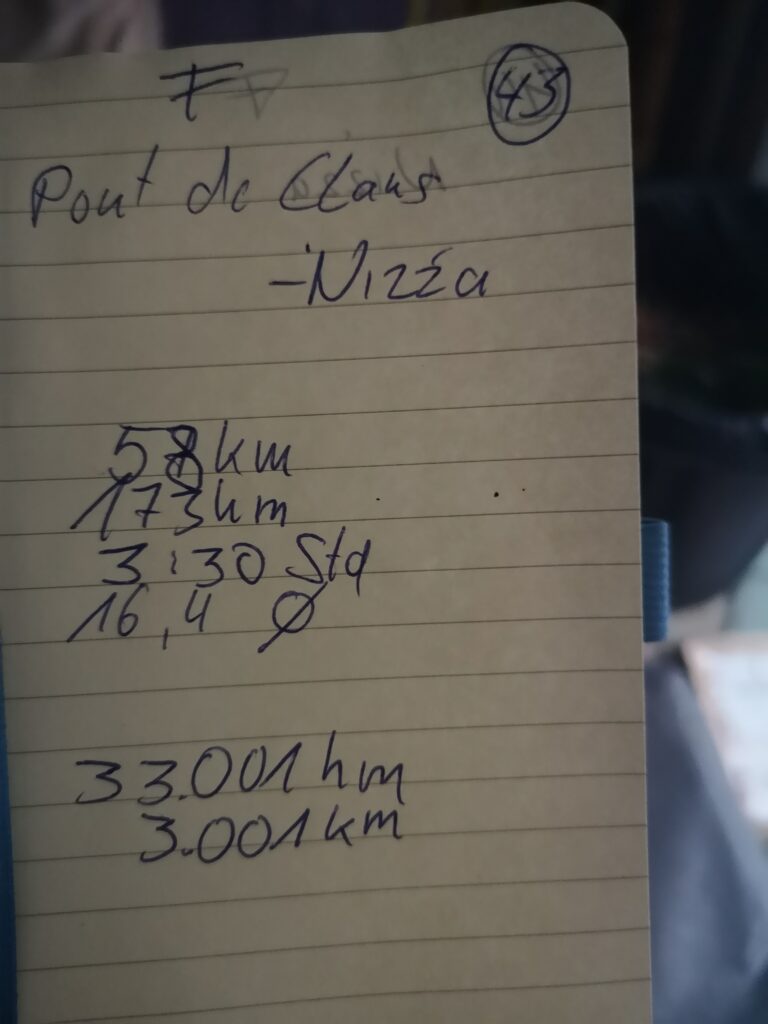 F
43
Pont de Claus
- Nizza
58 km
173 hm
3:30 Std
16,4 Ø
33.001 hm
3.001 km